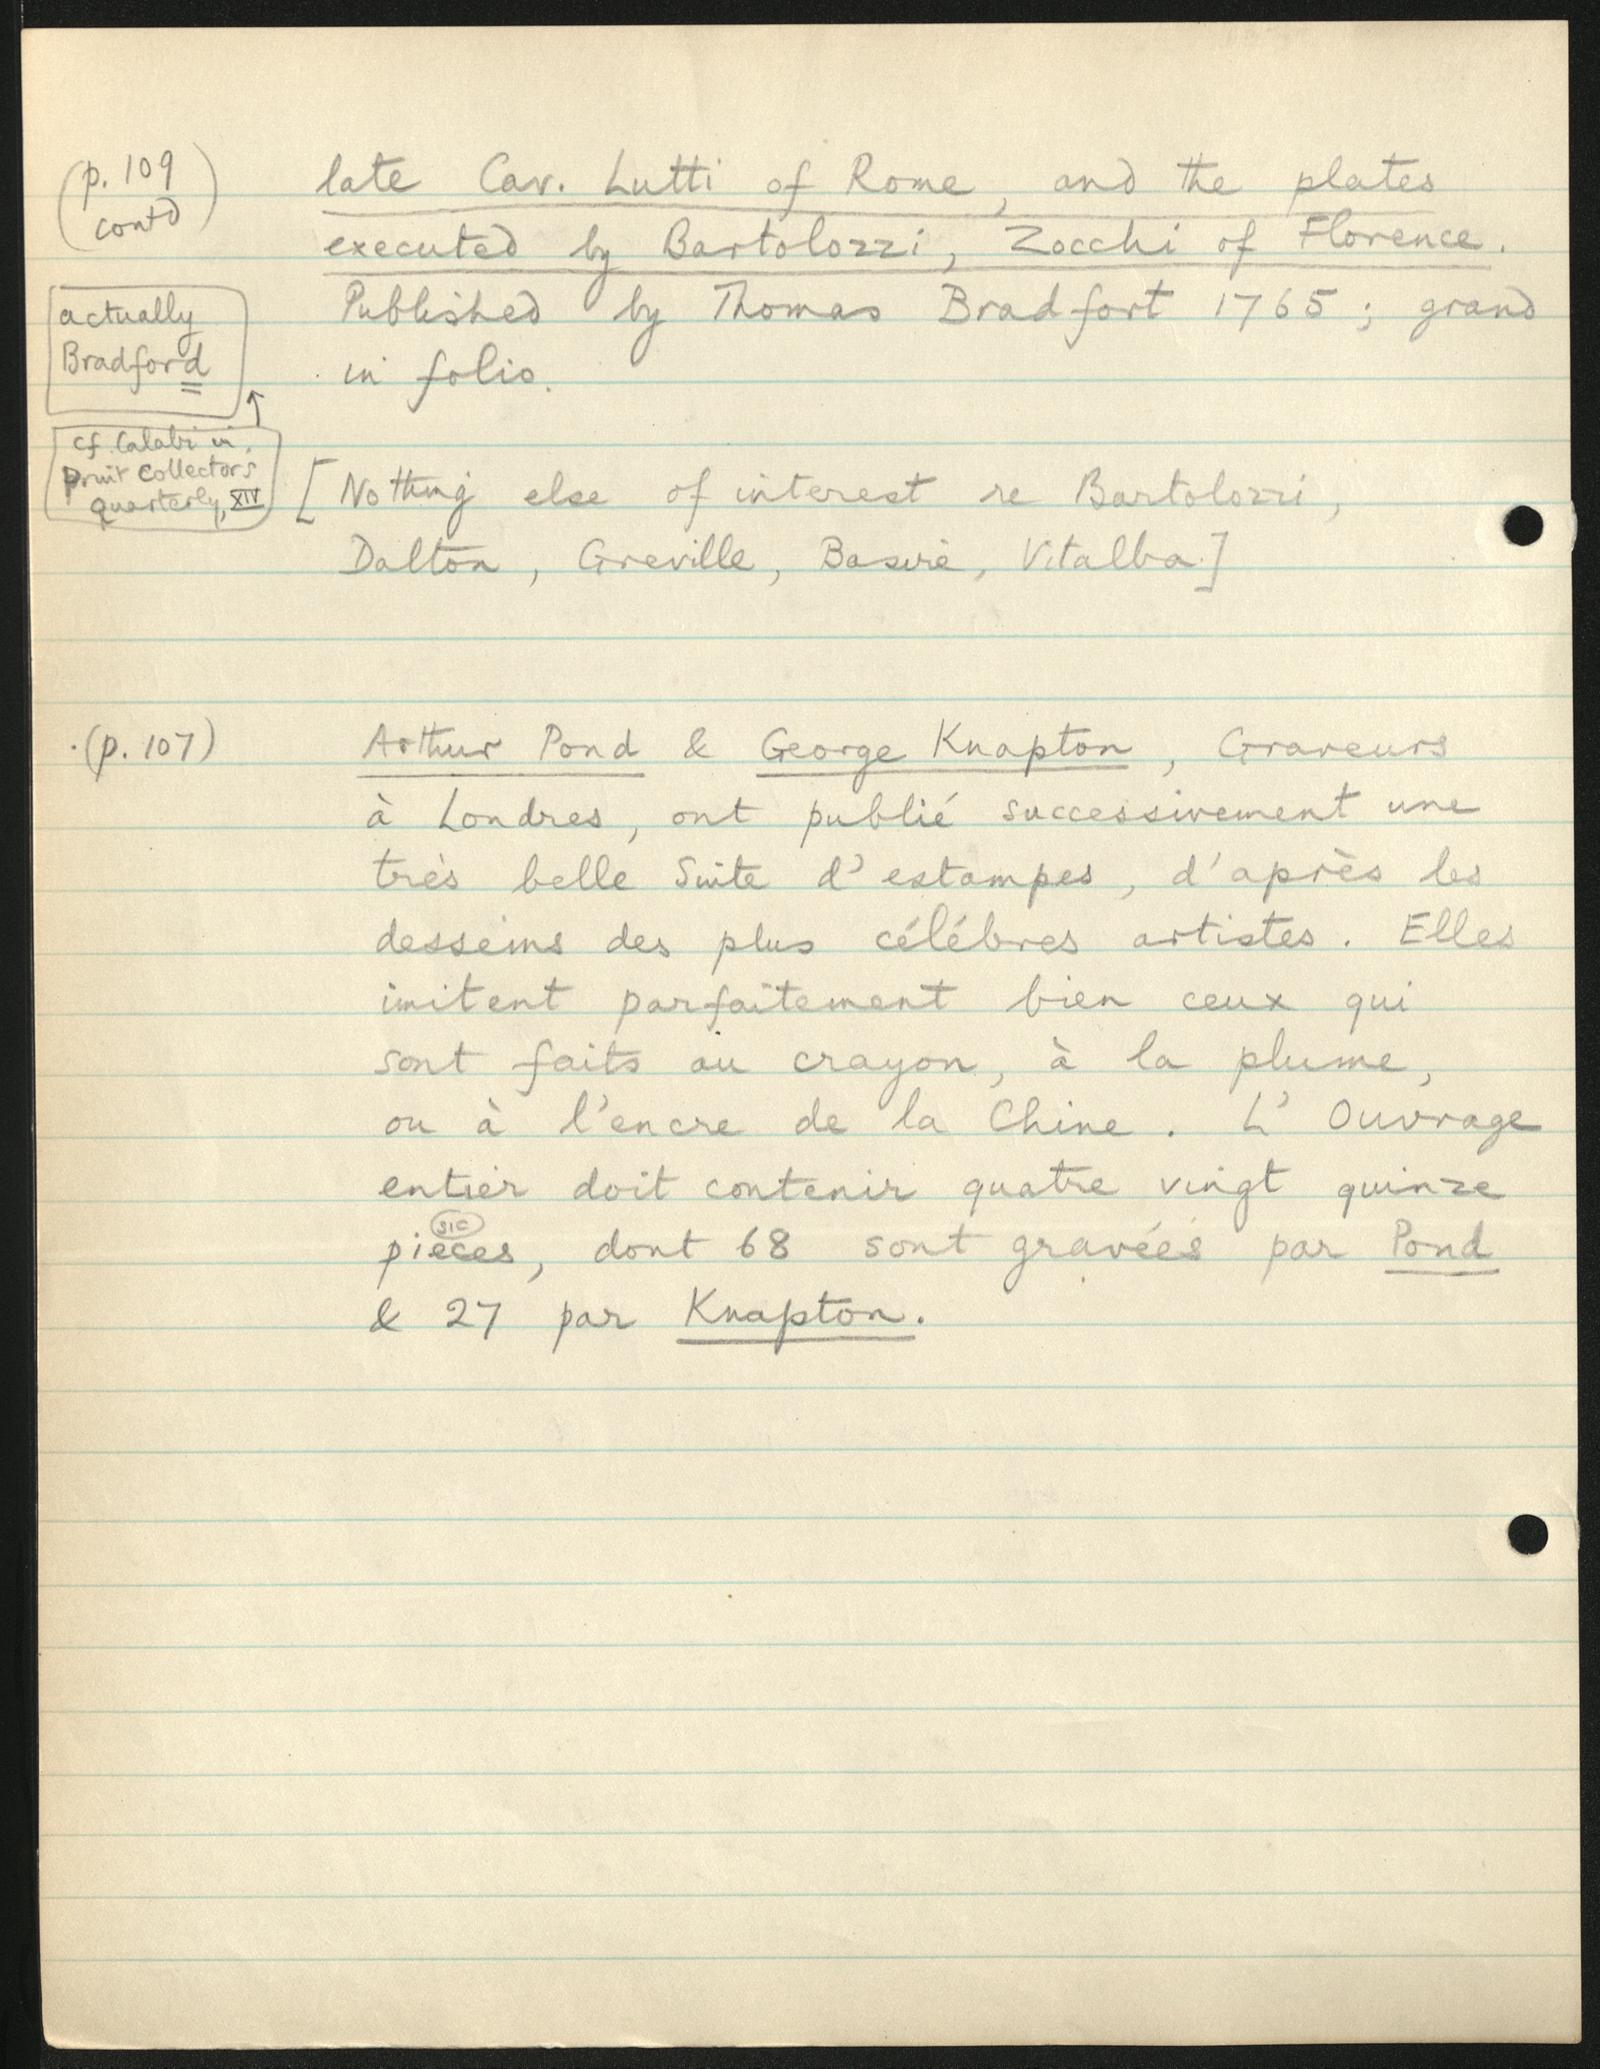 (p. 109
contd)
late Cav. Lutti of Rome, and the plates
executed by Bartolozzi, Zocchi of Florence.
Published by Thomas Bradfort 1765; grand
in folio.
actually
Bradford
cf. Calabi in
Print Collector's
Quarterly, XIV
[Nothing else of interest re Bartolozzi,
Dalton, Greville, Basire, Vitalba]
(p. 107)
Arthur Pond & George Knapton, Graveurs
à Londres, ont publié successivement une
très belle Suite d'estampes, d'après les
desseins des plus célébres artistes. Elles
imitent parfaitement bien ceux qui
sont faits au crayon, à la plume,
ou à l'encre de la Chine. L'Ouvrage
entier doit contenir quatre vingt quinze
sic
pieces, dont 68 sont gravées par Pond
& 27 par Knapton.